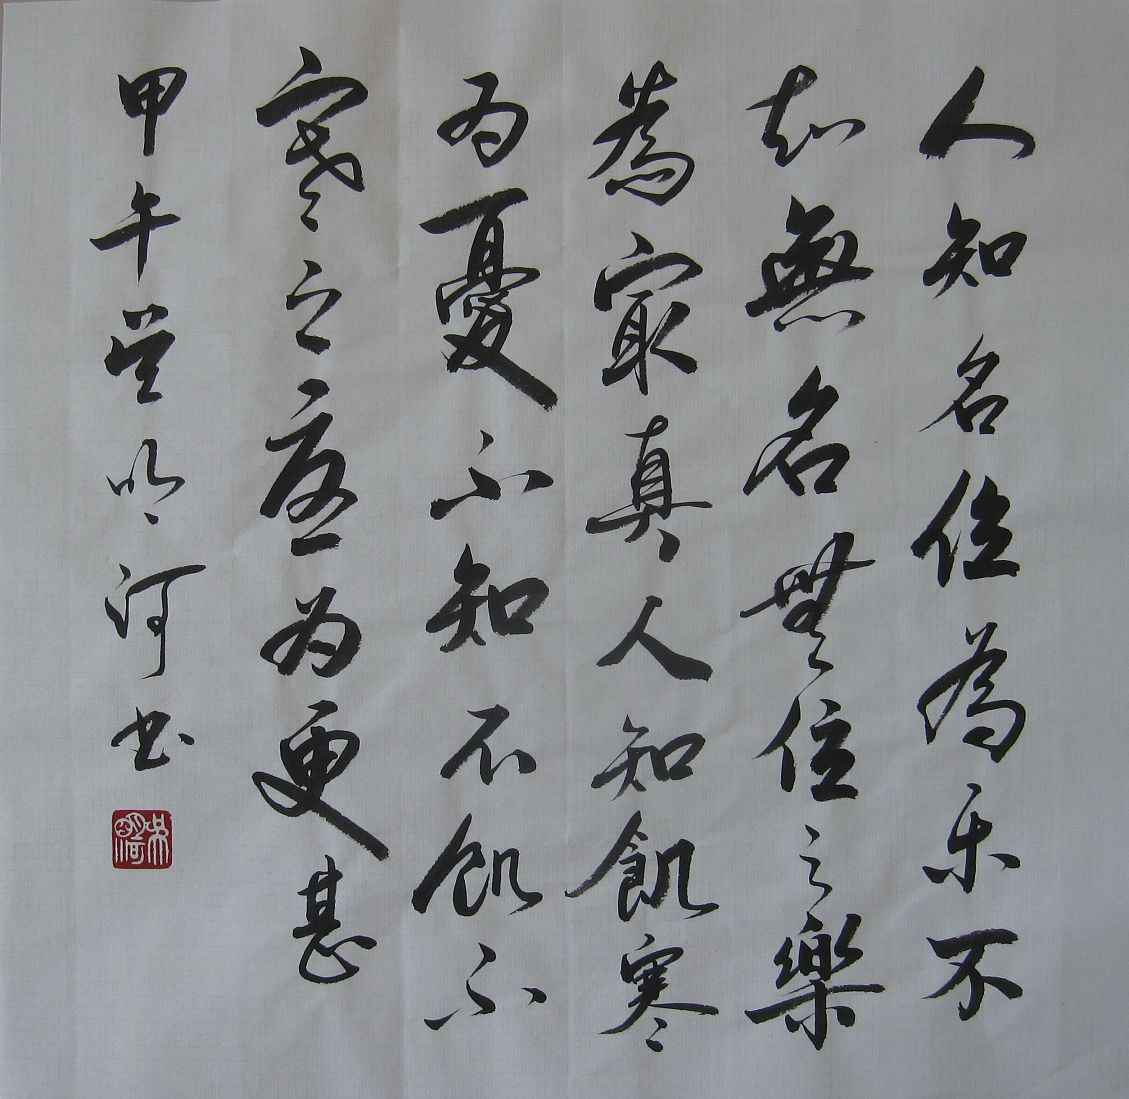 人知名位為乐不
知無名無位之樂
為最真人知飢寒
为憂不知不飢不
寒之憂为更甚
甲午吴明河书
吴明河